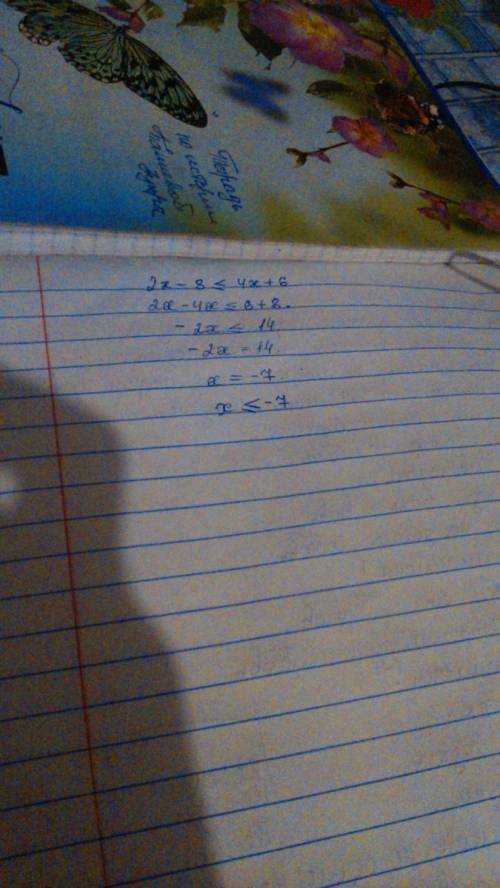 Тетрадь
по истории
2x - 8 ≤ 4x + 6
2x - 4x ≤ 6 + 8.
- 2x ≤ 14
- 2x = 14
x = -7
x ≤ -7